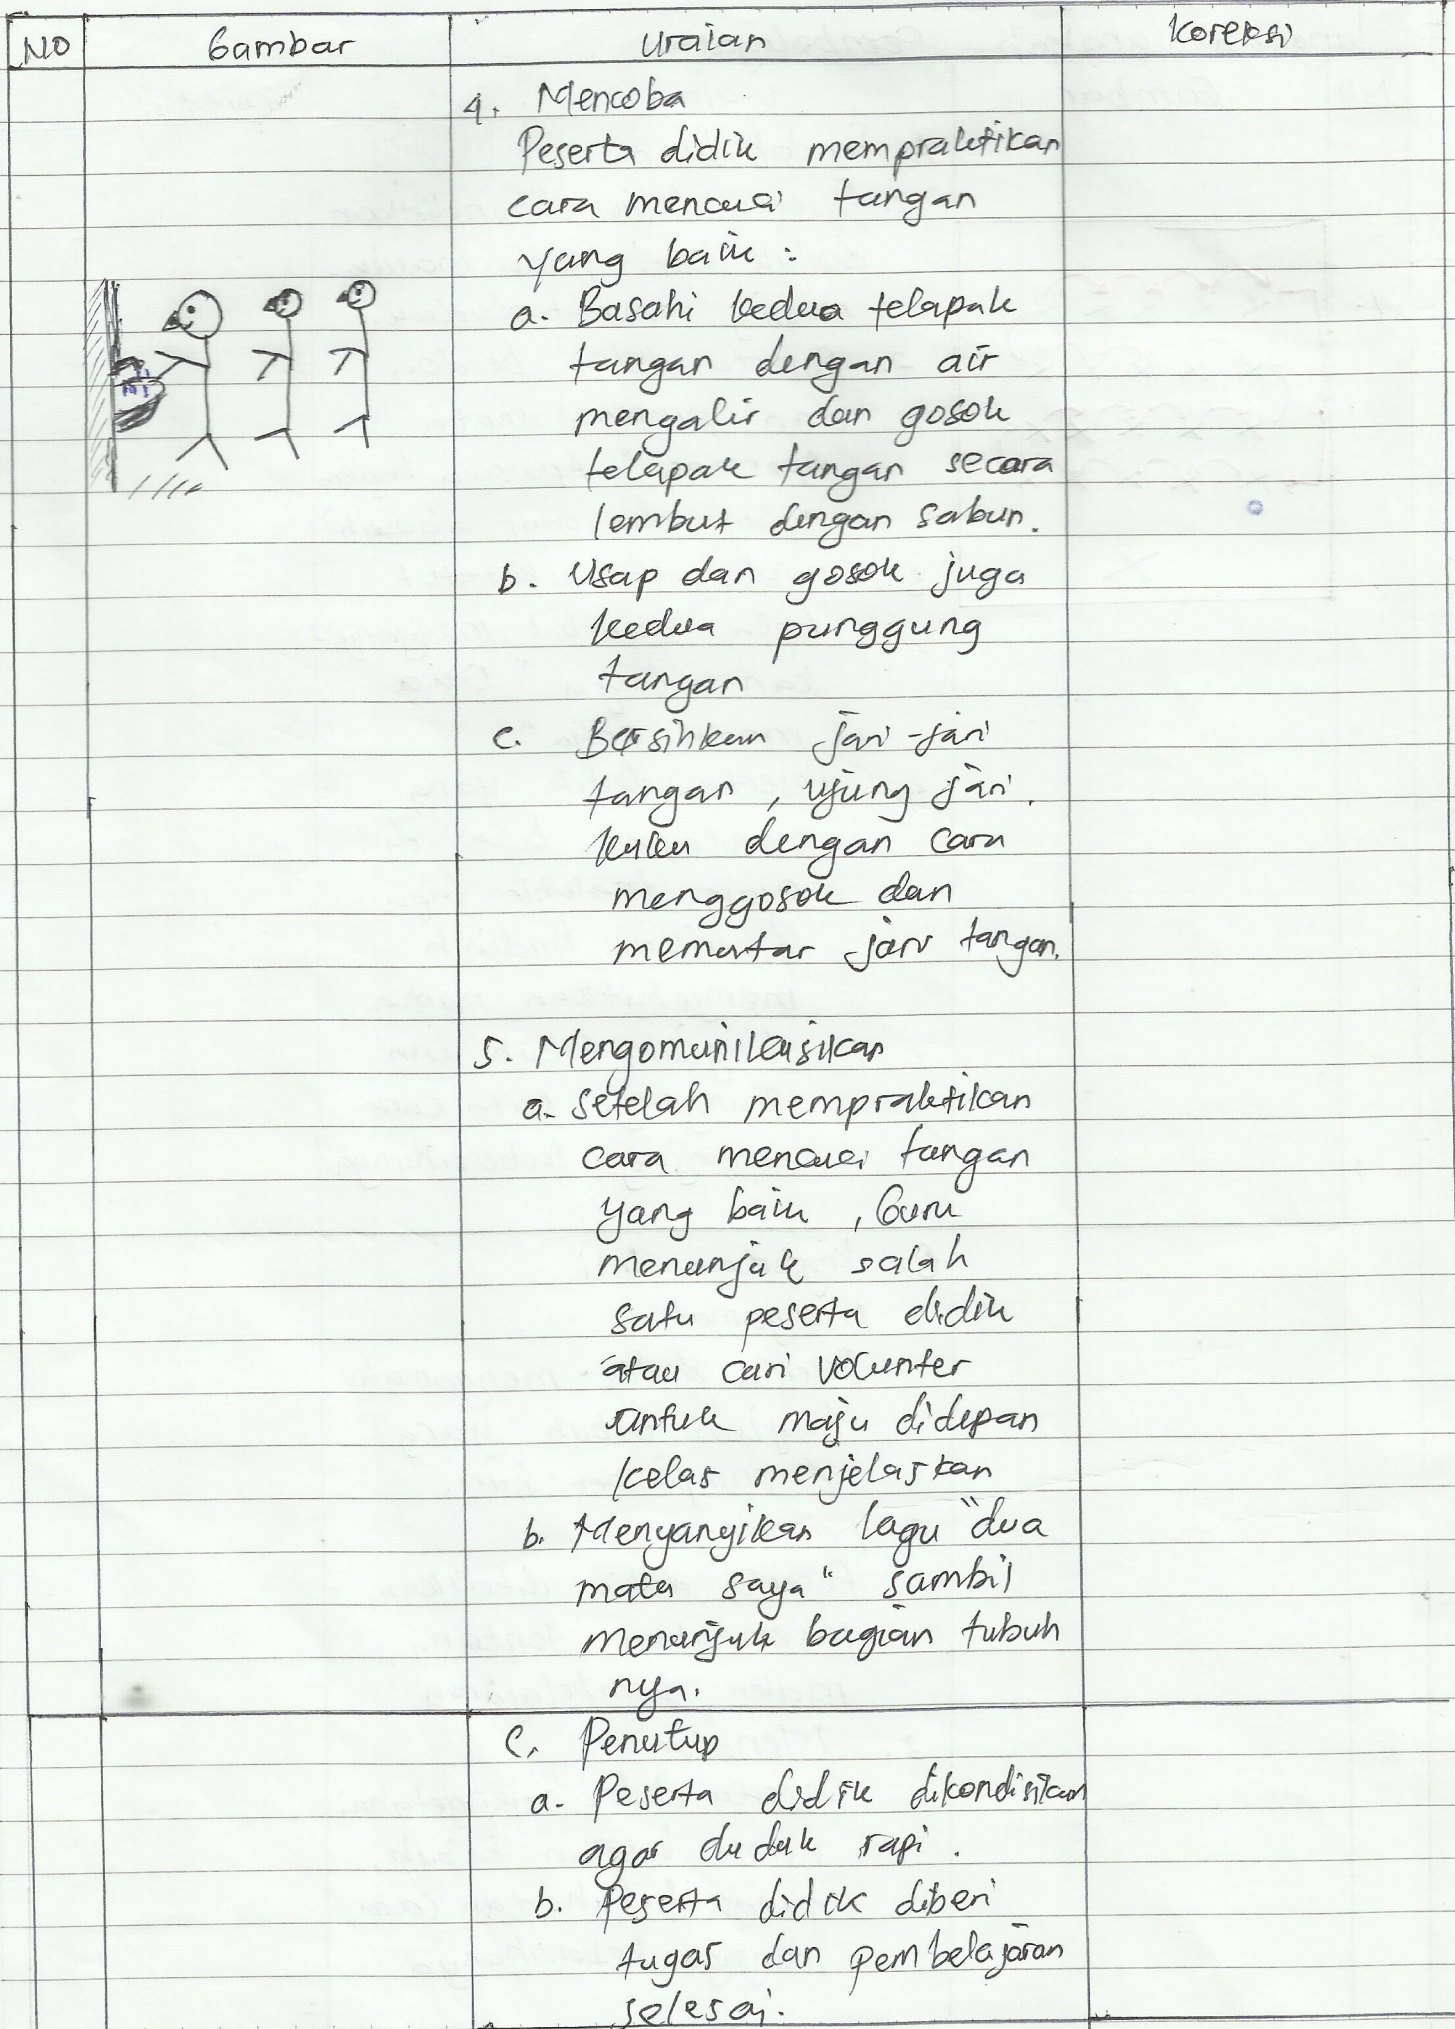 NO Gambar Uraian Koreksi
4. Mencoba
Peserta didik mempraktikan
cara mencuci tangan
yang baik :
a. Basahi kedua telapak
tangan dengan air
mengalir dan gosok
telapak tangan secara
lembut dengan sabun.
b. Usap dan gosok juga
kedua punggung
tangan
c. Bersihkan jari-jari
tangan, ujung jari.
kuku dengan cara
menggosok dan
memutar jari tangan.
5. Mengomunikasikan
a. Setelah mempraktikan
cara mencuci tangan
yang baik, Guru
menunjuk salah
satu peserta didik
atau cari volunter
untuk maju didepan
kelas menjelaskan
b. Menyanyikan lagu "dua
mata saya" sambil
menunjuk bagian tubuh
nya.
C. Penutup
a. Peserta didik dikondisikan
agar duduk rapi.
b. Peserta didik diberi
tugas dan pembelajaran
selesai.